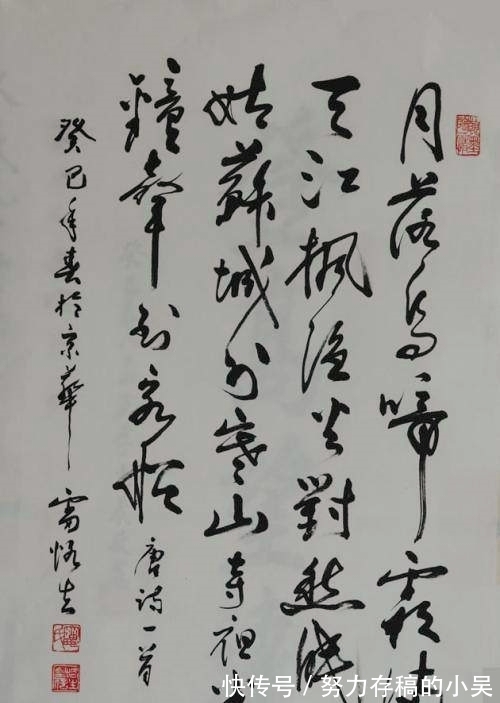 月落烏啼霜滿
天江楓漁火對愁眠
姑蘇城外寒山寺夜半
鐘聲到客船 唐詩一首
癸巳年春於京華 雷恪生
快传号 / 努力存稿的小吴